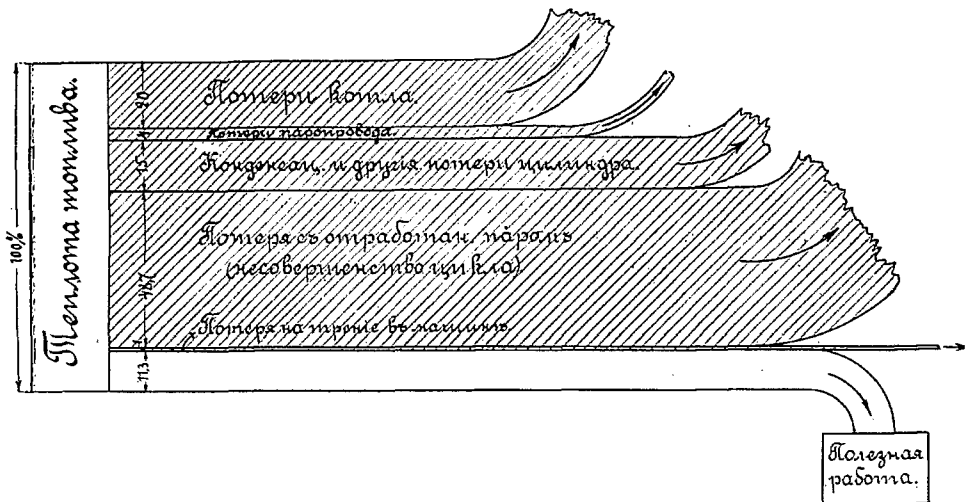 100%
Теплота топлива.
20
Потери котла.
4
Потери паропровода.
15
Конденсац. и другія потери цилиндра.
48,7
Потеря съ отработан. паромъ
(несовершенство цикла)
1
Потеря на треніе въ машинѣ.
11,3
Полезная
работа.